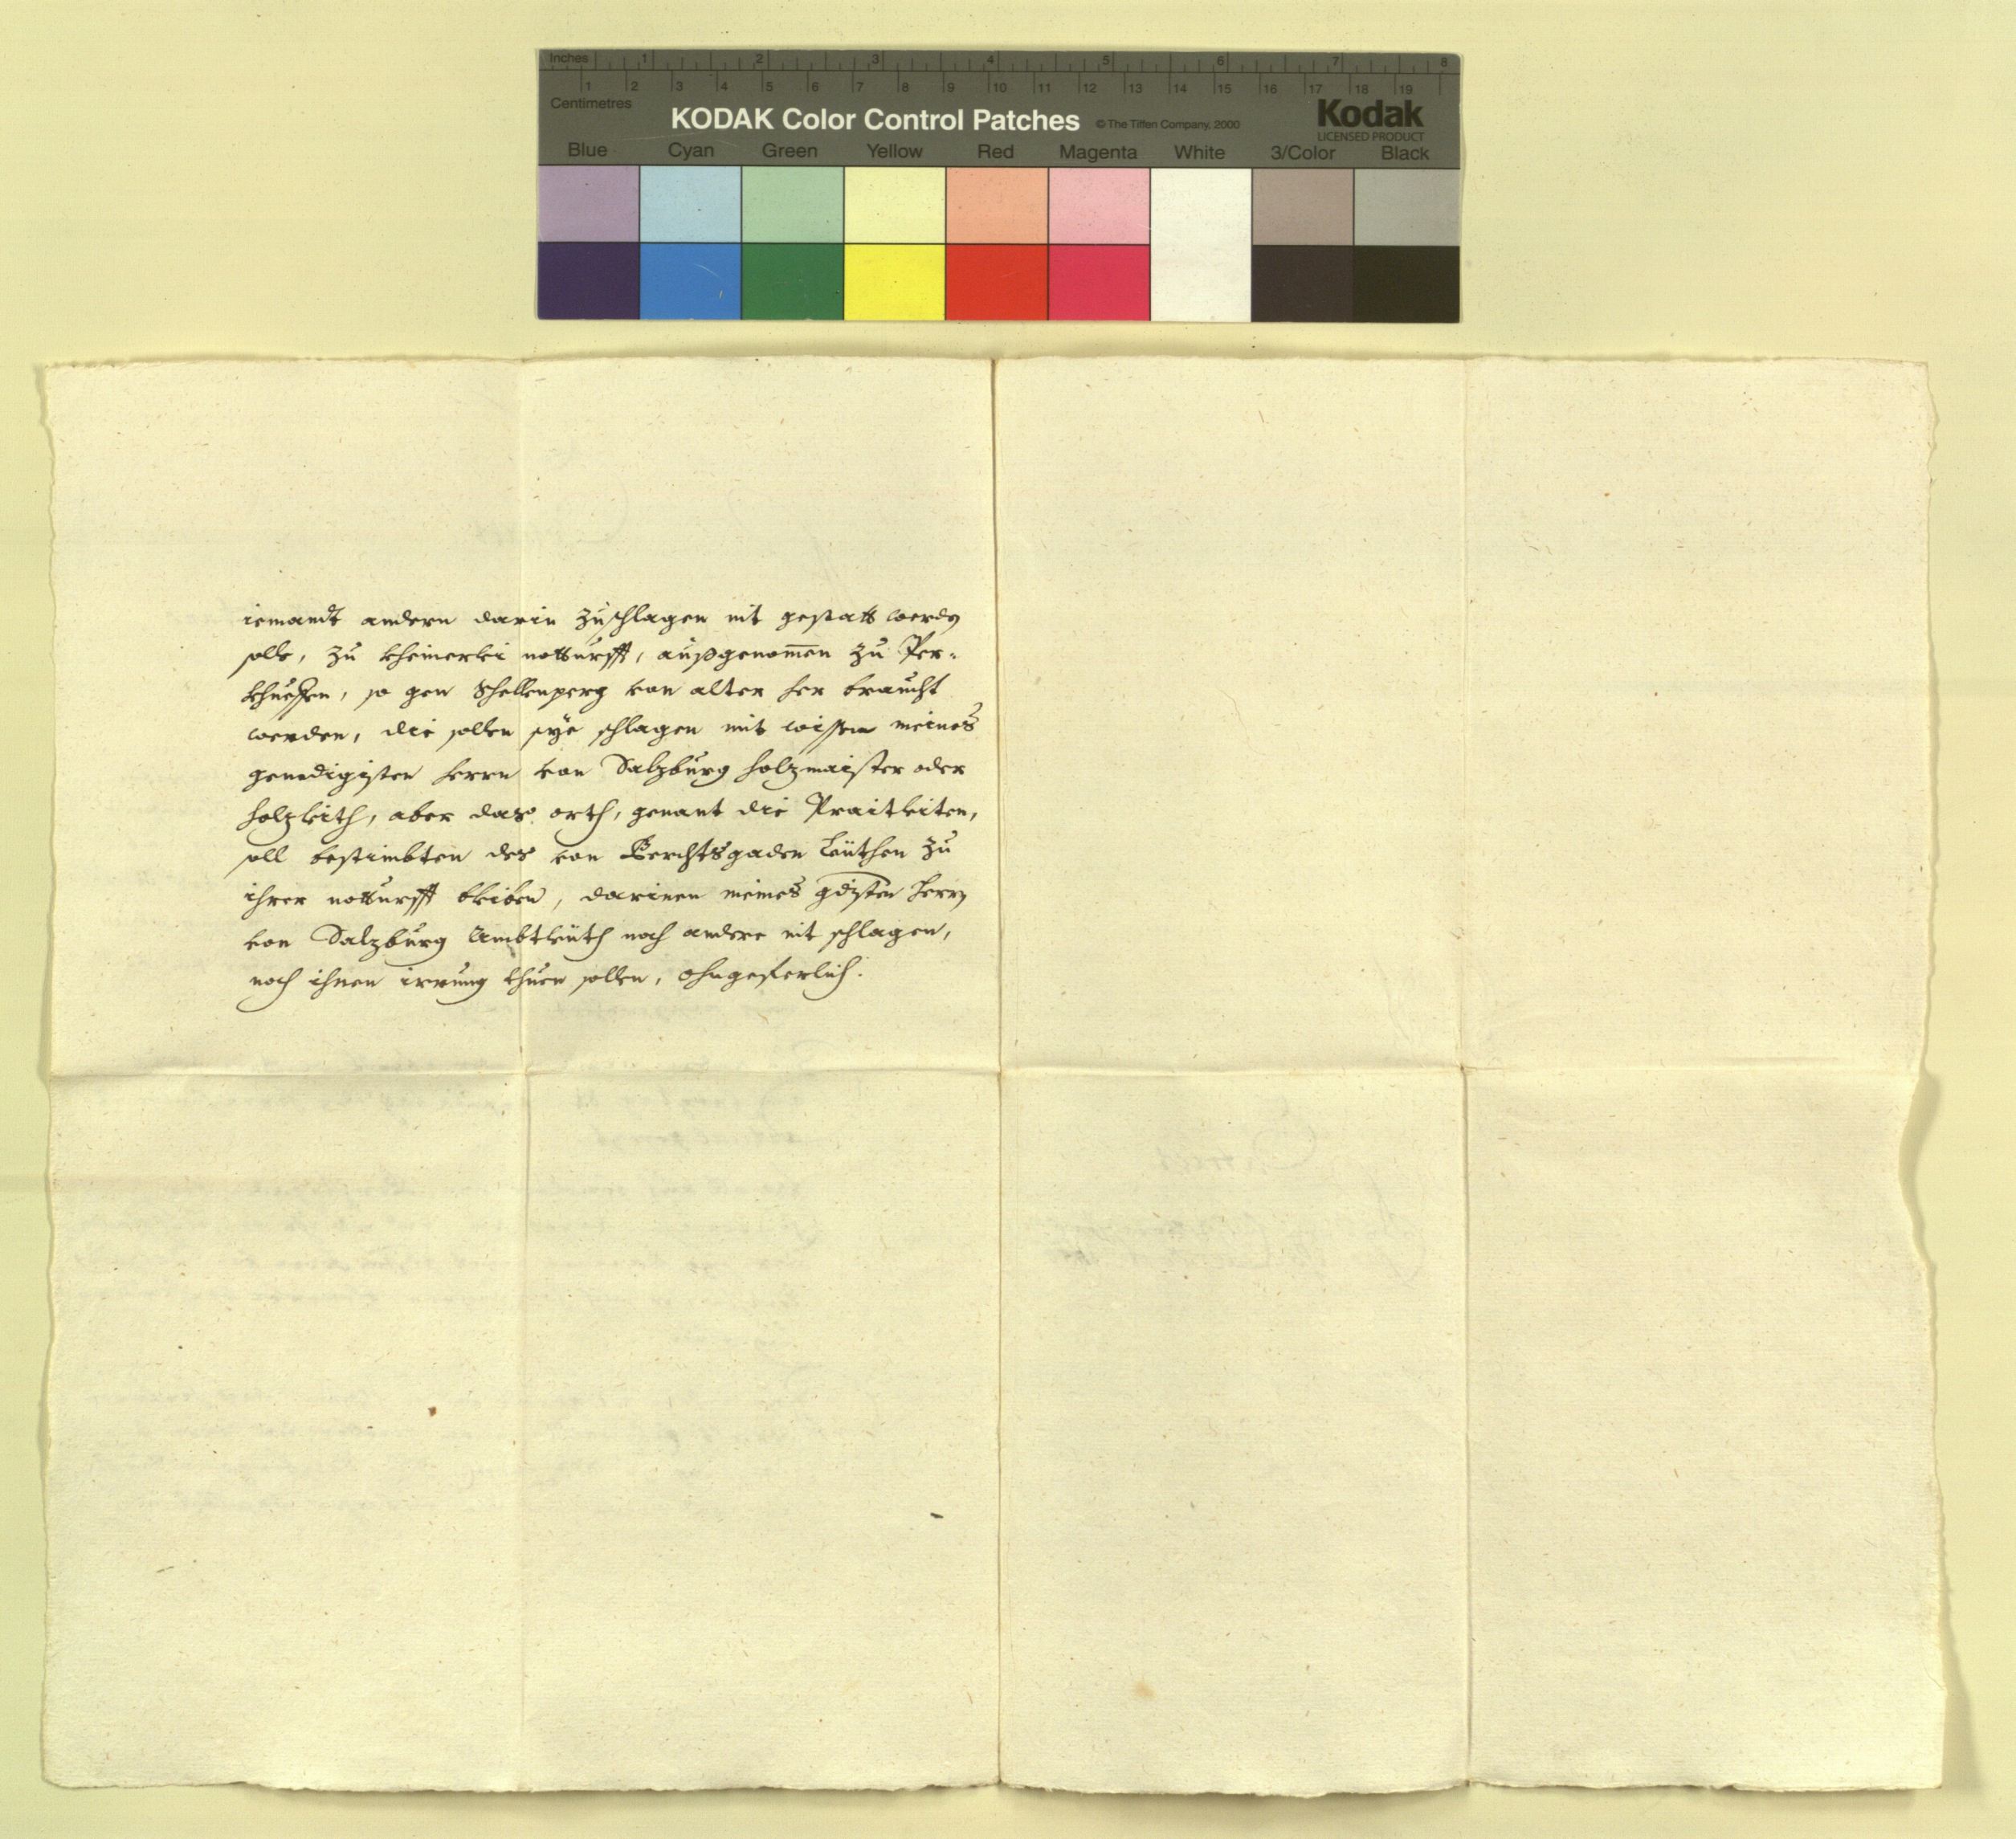 Inches 1 2 3 4 5 6 7 8
1 2 3 4 5 6 7 8 9 10 11 12 13 14 15 16 17 18 19
Centimetres
KODAK Color Control Patches © The Tiffen Company, 2000 Kodak
LICENSED PRODUCT
Blue Cyan Green Yellow Red Magenta White 3/Color Black
iemandt andern darin zuschlagen nit gestatt werdn
solle, zu kheinerlei notturfft, außgenomen zu Per-
khuefen, so gen Schellenperg von alter her braucht
werden, die sollen sye schlagen mit wissen meines
genedigisten herrn von Salzburg holzmaister oder
holzleith, aber das orth, genant die Praitleiten,
soll bestimbten des von Berchtsgaden leüthen zu
ihrer notturfft bleiben, darinen meines gdisten herrn
von Salzburg Ambtleüth noch andere nit schlagen,
noch ihnen irrung thuen sollen, ohngeferlich.